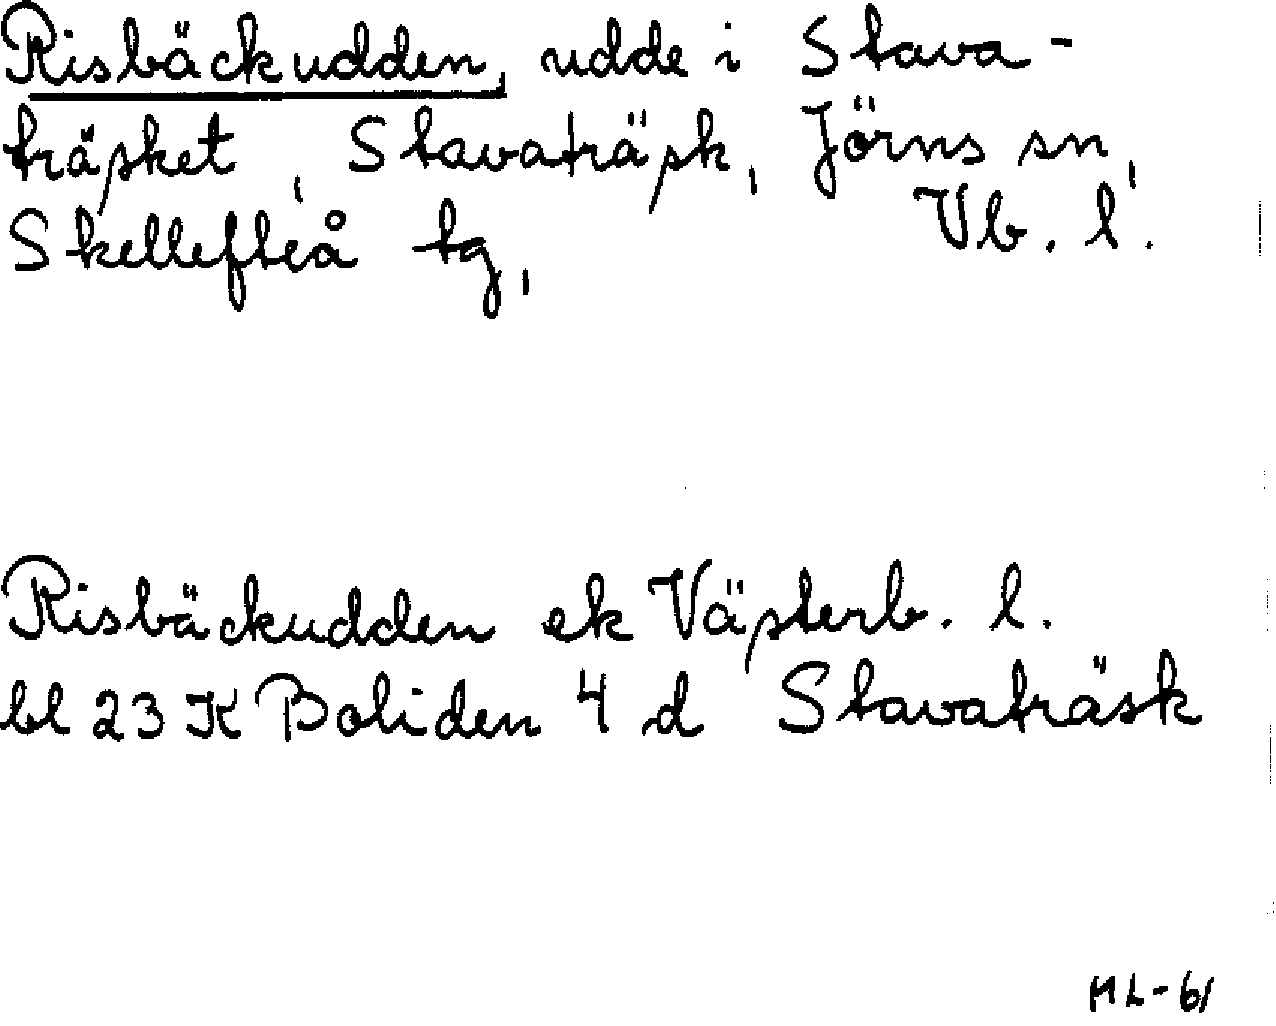 Risbäckudden, udde i Stava-
träsket, Stavaträsk, Jörns sn,
Skellefteå tg, Vb. l.
Risbäckudden ek Västerb. l.
bl 23 K Boliden 4 d Stavaträsk
HL-61